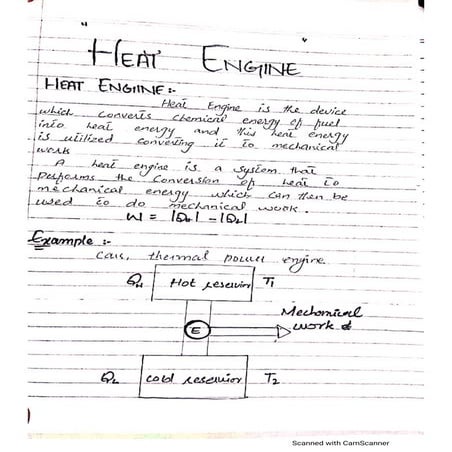 HEAT ENGINE
HEAT ENGIINE :-
Heat Engine is the device
which converts chemical energy of fuel
into heat energy and this heat energy
is utilized converting it to mechanical
work
A heat engine is a system that
performs the conversion of heat to
mechanical energy which can then be
used to do mechanical work.
W = |QH| - |QL|
Example :-
Cars, thermal power engine.
QH Hot reservior T1
Mechanical
E work
QL cold reservior T2
Scanned with CamScanner